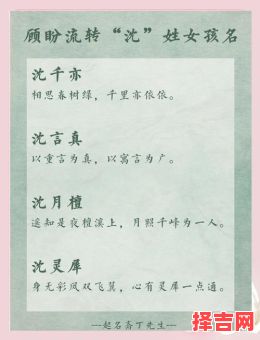 顾盼流转“沈”姓女孩名
沈千亦
相思春树绿，千里亦依依。
沈言真
以重言为真，以寓言为广。
沈月檀
遥知是夜檀溪上，月照千峰为一人。
沈灵犀
身无彩凤双飞翼，心有灵犀一点通。
—起名斋丁先生—
择吉网